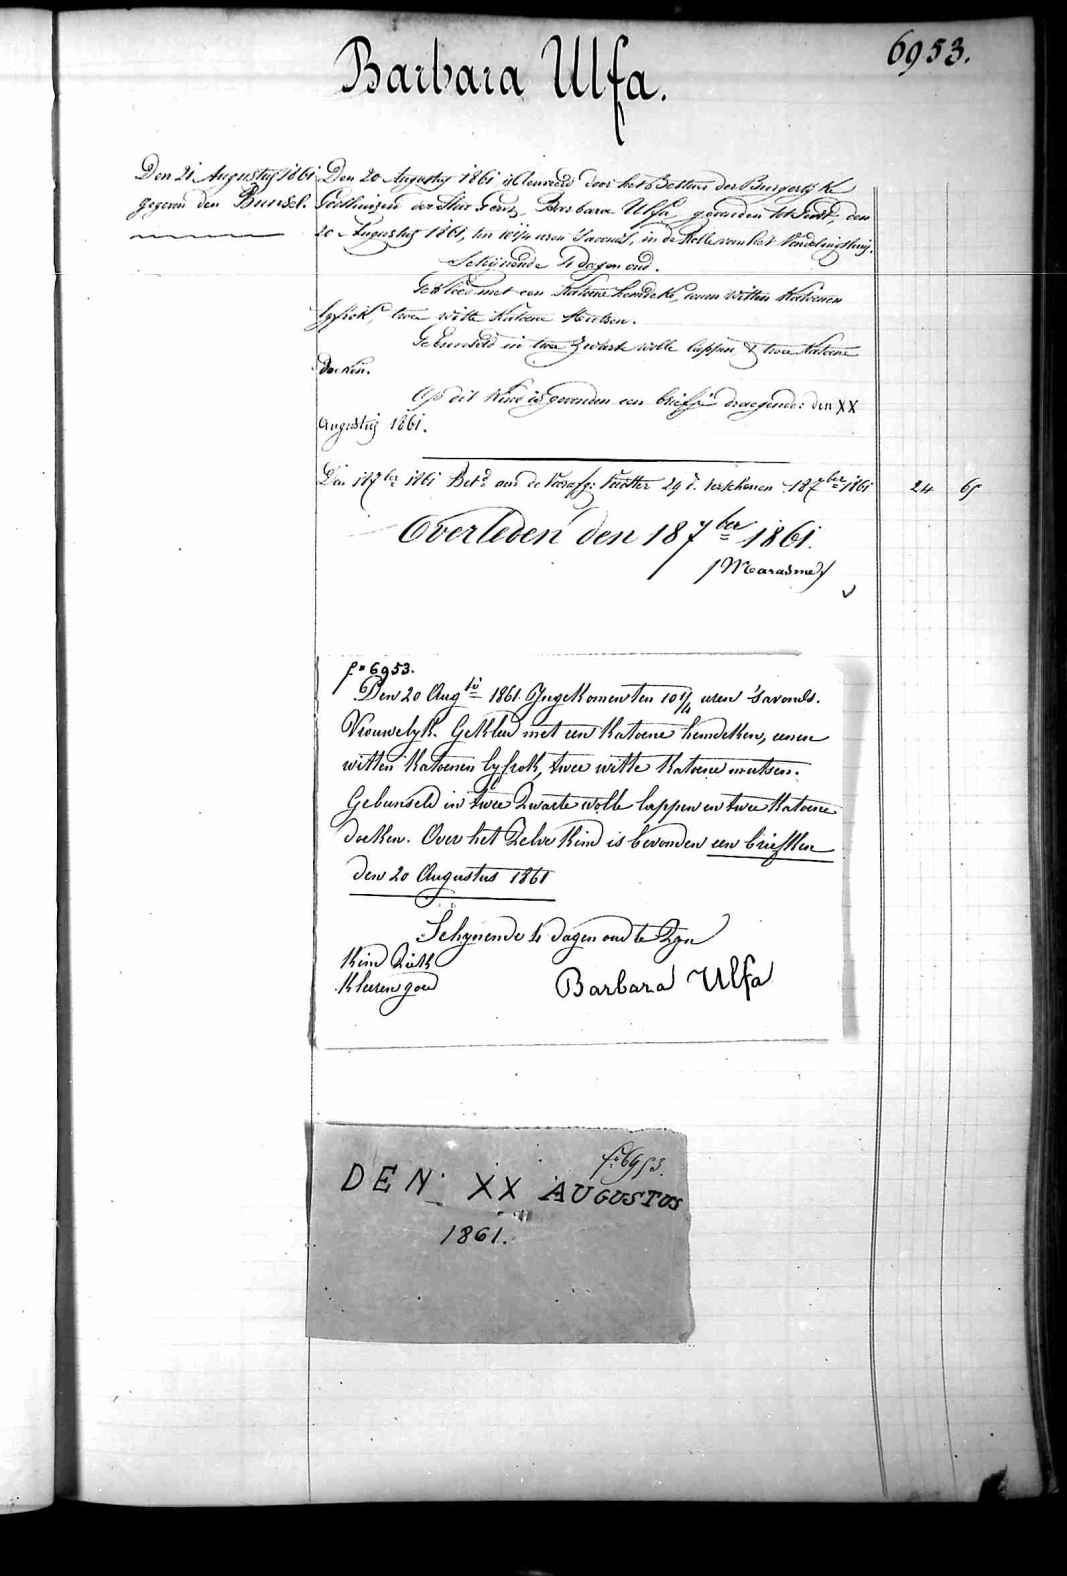 6953.
Barbara Ulfa.
Den 21 Augustij 1861
gegeven den Bunsel.
Den 20 Augustij 1861 is besteed door het Bestuur der Burgerlijke
Godshuizen der Stad Gend, Barbara Ulfa, gevonden te Gend den
20 Augustij 1861, ten 10 1/4 uren 's avonds, in de Rolle van het Vondelingshuis.
Schijnende 4 dagen oud.
Gekleed met een Katoene hemdeke, eenen witten Katoenen
lyfrok, twee witte Katoene Mutsen.
Gebunseld in twee zwarte wolle lappen & twee Katoene
doeken.
Op dit Kind is gevonden een briefje dragende: den XX
Augustij 1861.
Den 18 7ber 1861 Bet.d aan de 29 d. verschenen 18 7ber 1861 24 65
Overleden den 18 7ber 1861.
/Marasme/
f° 6953.
Den 20 Augti 1861 Ingekomen ten 10 1/4 uren 's avonds.
Vrouwelyk. Gekleed met een Katoene hemdeken, eenen
witten Katoenen lyfrok, twee witte Katoene mutsen.
Gebunseld in twee Zwarte wolle lappen en twee Katoene
doeken. Over het Zelve Kind is bevonden een briefken
den 20 Augustus 1861
Schynende 4 dagen oud te Zyn
Kind Ziek
Kleeren goed
Barbara Ulfa
f° 6953.
DEN XX AUGUSTUS
1861.